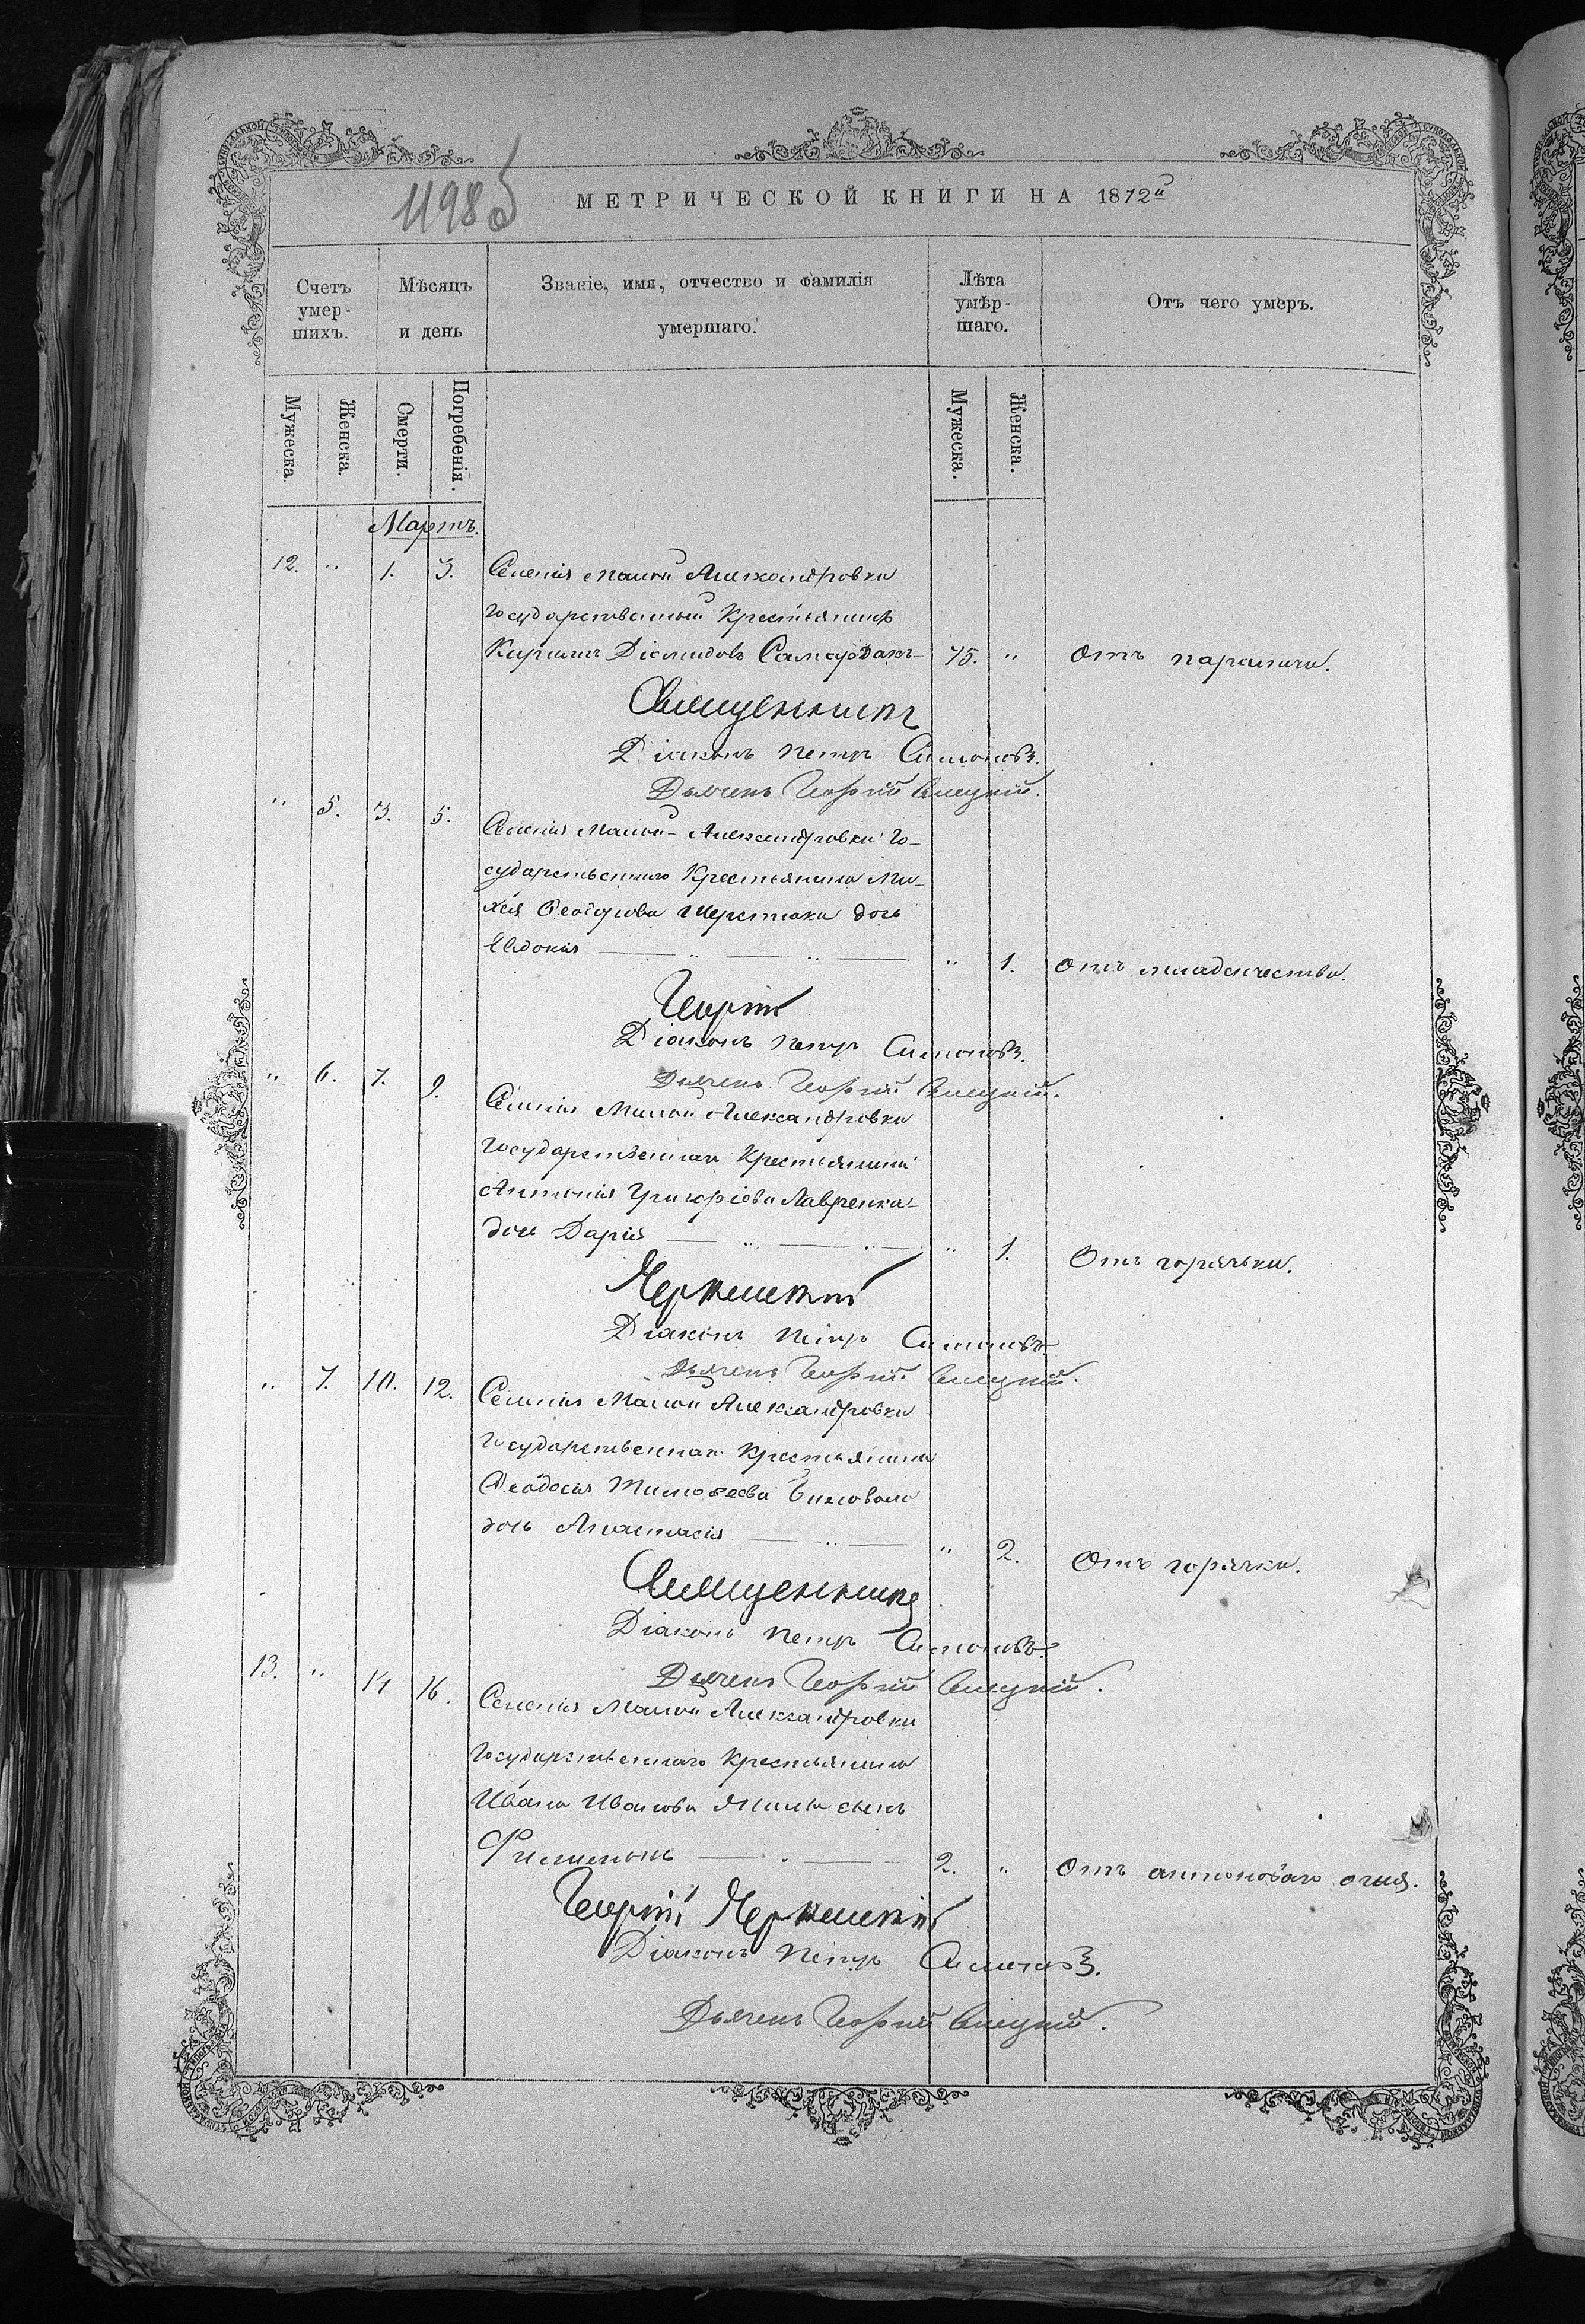 1198 б
МЕТРИЧЕСКОЙ КНИГИ НА 1872й
Счетъ умер-шихъ.
Мѣсяцъ и день
Званіе, имя, отчество и фамилія умершаго.
Лѣта умѣр-шаго.
Отъ чего умеръ.
Мужеска.
Женска.
Смерти.
Погребенія.
Мужеска.
Женска.
Мартъ.
12. " 1. 3. Селенія малой Александровки
государственный Крестьянинъ
Кириллъ Діомидовъ 75. " Отъ паралича.
Священникъ
Діаконъ Петръ Симоновъ.
Дьячекъ Георгій
" 5. 3. 5. Селенія Малой-Александровки Го-
сударственнаго Крестьянина Ми-
хея Феодорова Шерстюка дочь
Евдокія " 1. Отъ младенчества.
Георгій
Діаконъ Петръ Симоновъ.
Дьячекъ Георгій
" 6. 7. 9. Селенія Малой Александровки
государственнаго Крестьянина
Антонія Григоріева Лавренка-
дочь Дарія " 1. Отъ горячьки.
Діаконъ Петръ Симоновъ.
Дьячекъ Георгій
" 7. 10. 12. Селенія Малой Александровки
Государственнаго Крестьянина
Феодосія Тимофеева
дочь Анастасія " 2. Отъ горячки.
Священникъ
Діаконъ Петръ Симоновъ.
Дьячекъ Георгій
13. " 14 16. Селенія Малой Александровки
Государственнаго Крестьянина
Ивана Иванова сынъ
Филимонъ 2. " Отъ антоноваго огня.
Георгій
Діаконъ Петръ Симоновъ.
Дьячекъ Георгій